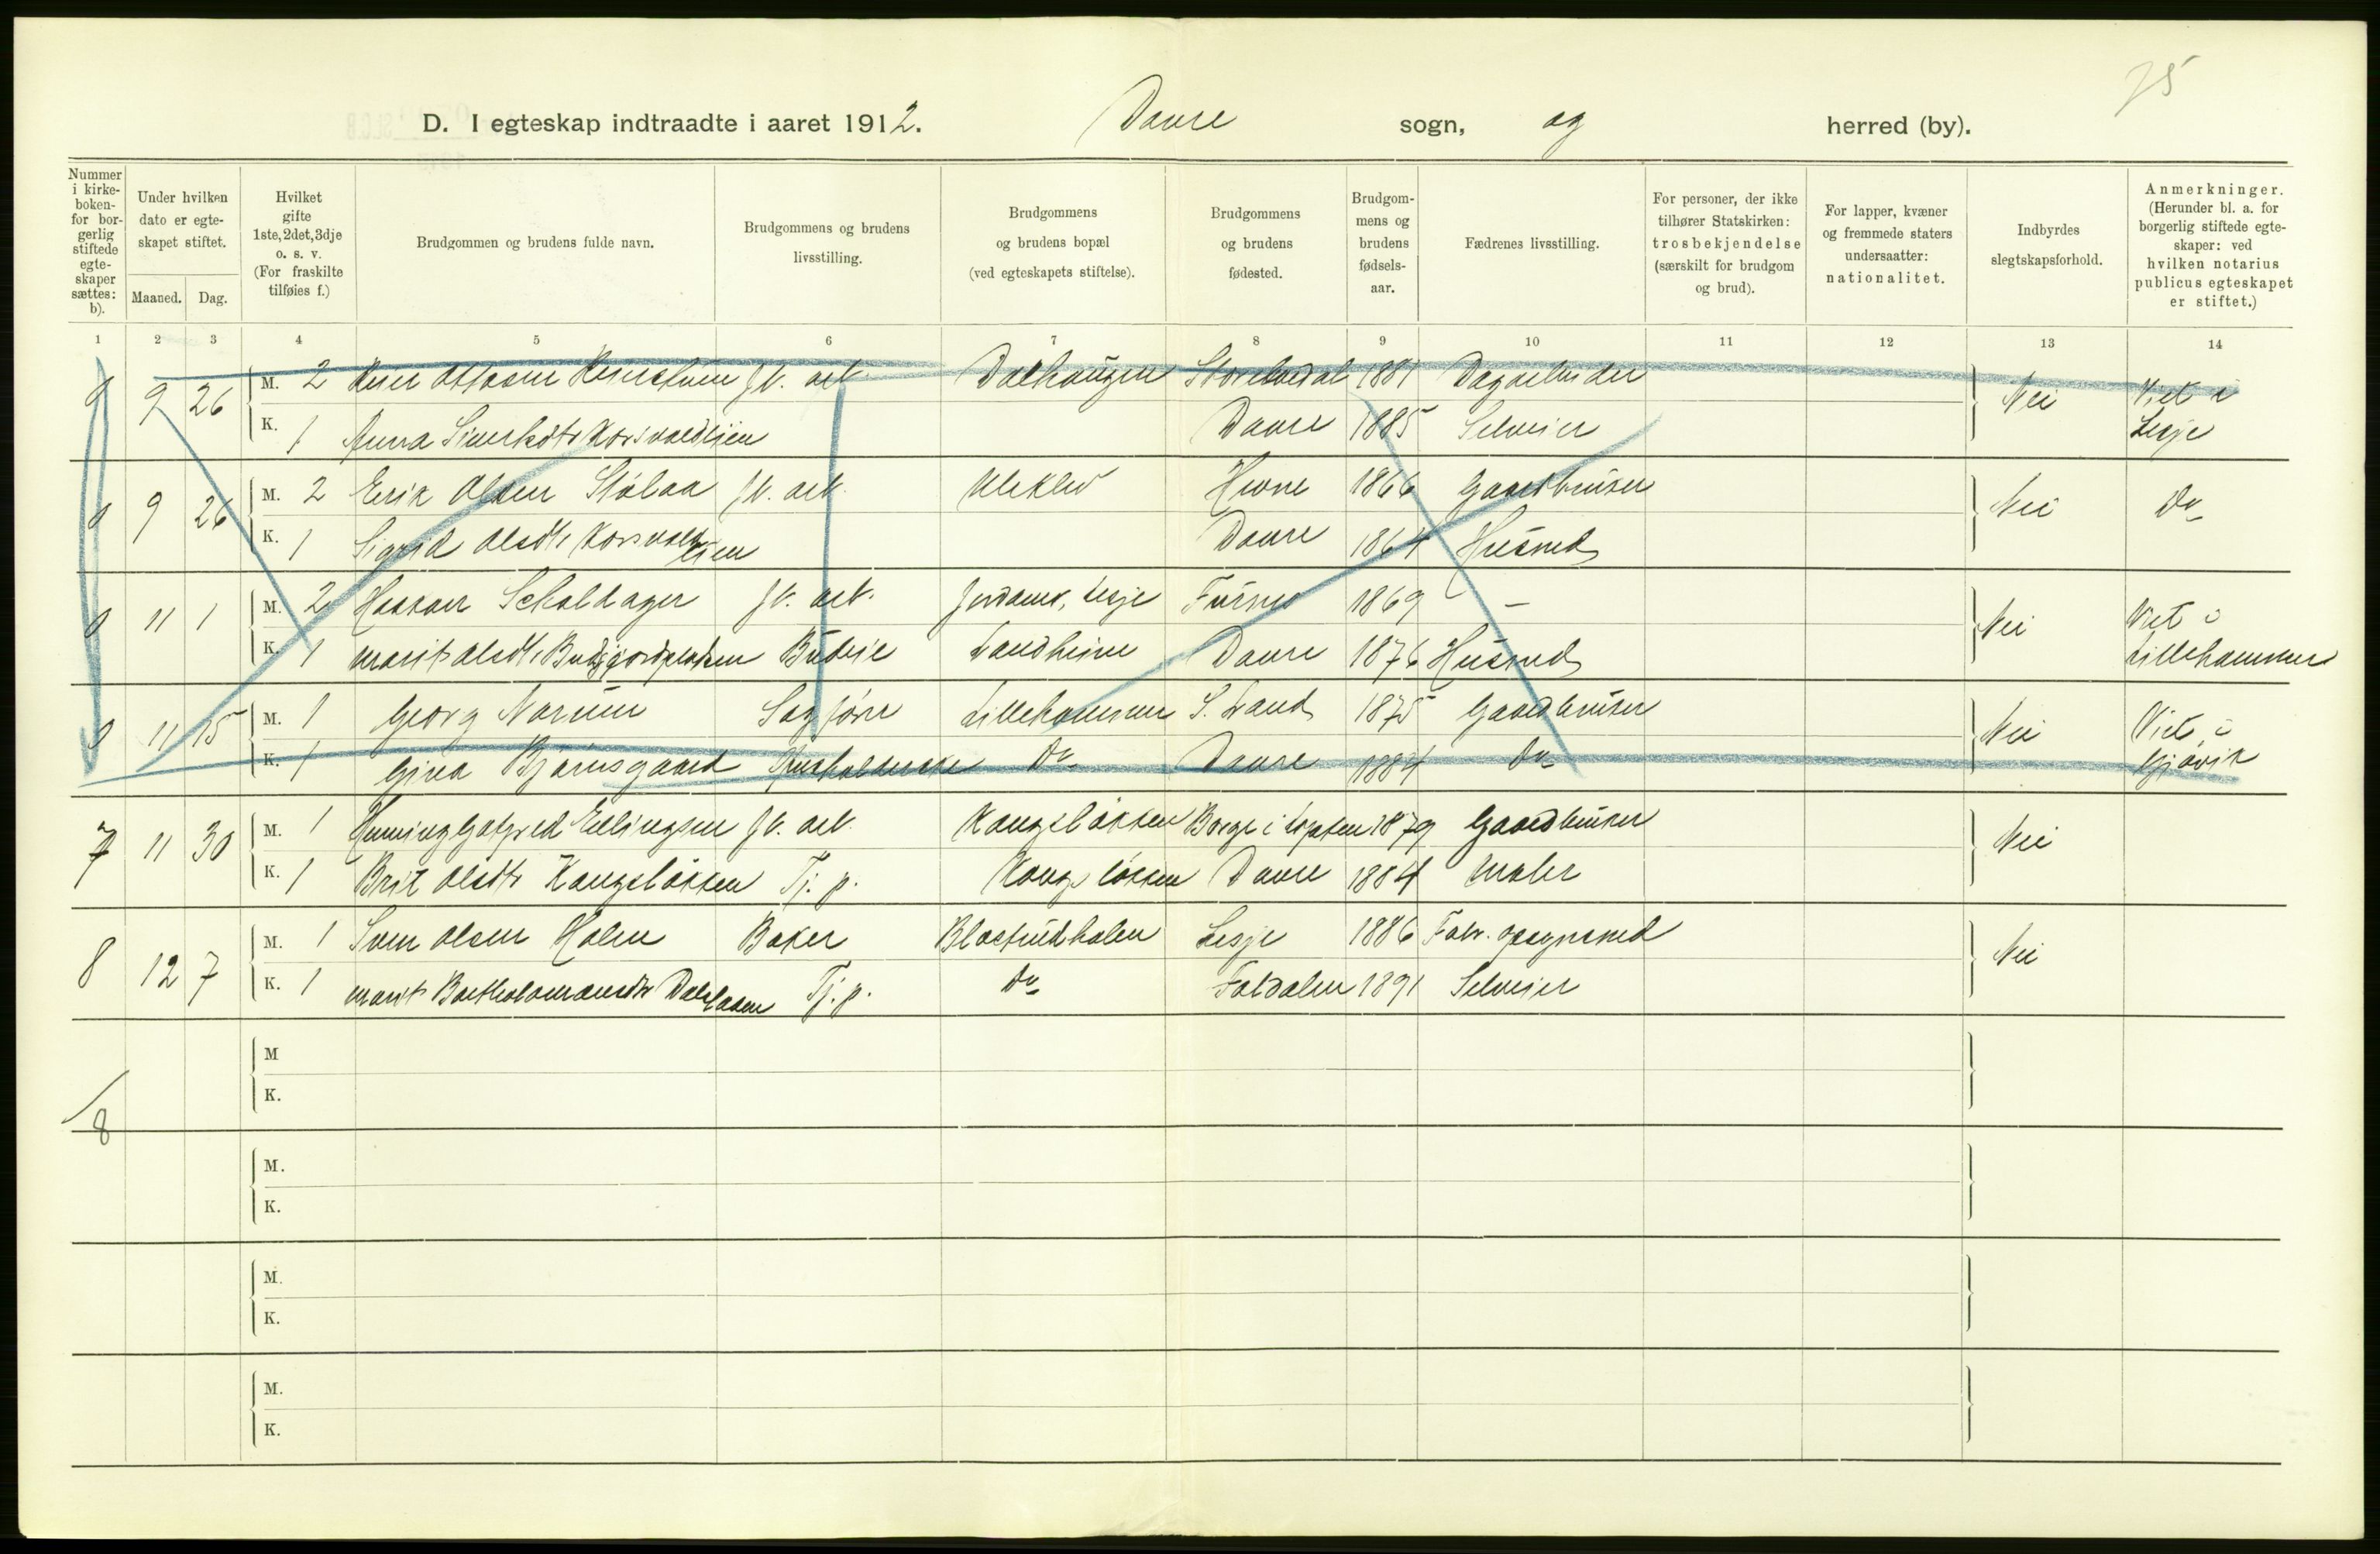 75
D. I egteskap indtraadte i aaret 1912. Dovre sogn, og herred (by).
Nummer i kirkeboken- for borgerlig stiftede egteskaper sættes: b).
Under hvilken dato er egteskapet stiftet.
Maaned. Dag.
Hvilket gifte 1ste, 2det, 3dje o. s. v. (For fraskilte tilføies f.)
Brudgommen og brudens fulde navn.
Brudgommens og brudens livsstilling.
Brudgommens og brudens bopæl (ved egteskapets stiftelse).
Brudgommens og brudens fødested.
Brudgommens og brudens fødselsaar.
Fædrenes livsstilling.
For personer, der ikke tilhører Statskirken: trosbekjendelse (særskilt for brudgom og brud).
For lapper, kvæner og fremmede staters undersaatter: nationalitet.
Indbyrdes slegtskapsforhold.
Anmerkninger. (Herunder bl. a. for borgerlig stiftede egteskaper: ved hvilken notarius publicus egteskapet er stiftet.)
1 2 3 4 5 6 7 8 9 10 11 12 13 14
0 9 26 M. 2 Ottosen J.b. arb. Dalhaugen 1881 Dagarbeider Nei Viet i
K. 1 Anna Siverhsdtr Korsvoldlien Dovre 1885 Selveier Lesje
0 9 26 M. 2 Erik Olsen Stölaa J.b. arb. Uleklev 1866 Gaardbruker Nei Do
K. 1 Sigrid Olsdtr Korsvoldlien Dovre 1864 Husmd
0 11 1 M. 2 Haakon Scholdager J.b. arb. Jordanv, Lesje Furnes 1869 — Nei Viet i
K. 1 Marit Olsdtr Budeie Landheim Dovre 1876 Husmd Lillehammer
0 11 15 M. 1 Georg Narum Sagförer Lillehammer S. Land 1875 Gaardbruker Nei Viet i
K. 1 Gina Bjørnsgaard Husholderske Do Dovre 1884 Do Gjøvik
7 11 30 M. 1 Henning Gotfred Ellingsen J.b. arb. Kongsløkken Borge i Lofoten 1879 Gaardbruker Nei
K. 1 Brit Olsdtr Kongsløkken Tj. p. Kongsløkken Dovre 1884 Maler
8 12 7 M. 1 Sven Olsen Holen Baker Blostrudholen Lesje 1886 Fabr. opsynsmd Nei
K. 1 Marit Bartholomæusdtr Tj. p. Do Foldalen 1891 Selveier
M
K.
8
M.
K.
M.
K.
M.
K.